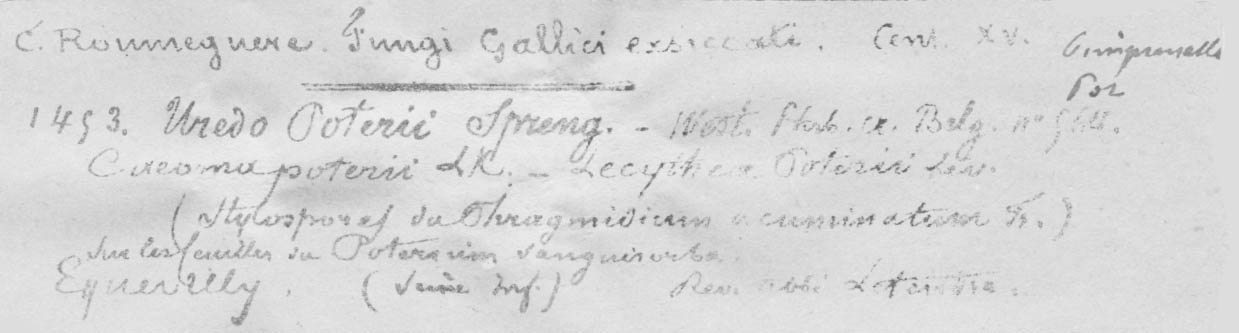 C. Roumeguere. Fungi Gallici exsiccati. Cent. XV.
1453. Uredo Poterii Spreng. - West. Hb. cr. Belg. nº
Caeoma poterii LK. - Lecythea Poterii Lev.
(Stylospores du Phragmidium acuminatum Fr.)
sur les feuilles du Poterium sanguisorba.
(Seine Inf.) Rev. abbé Letendre.